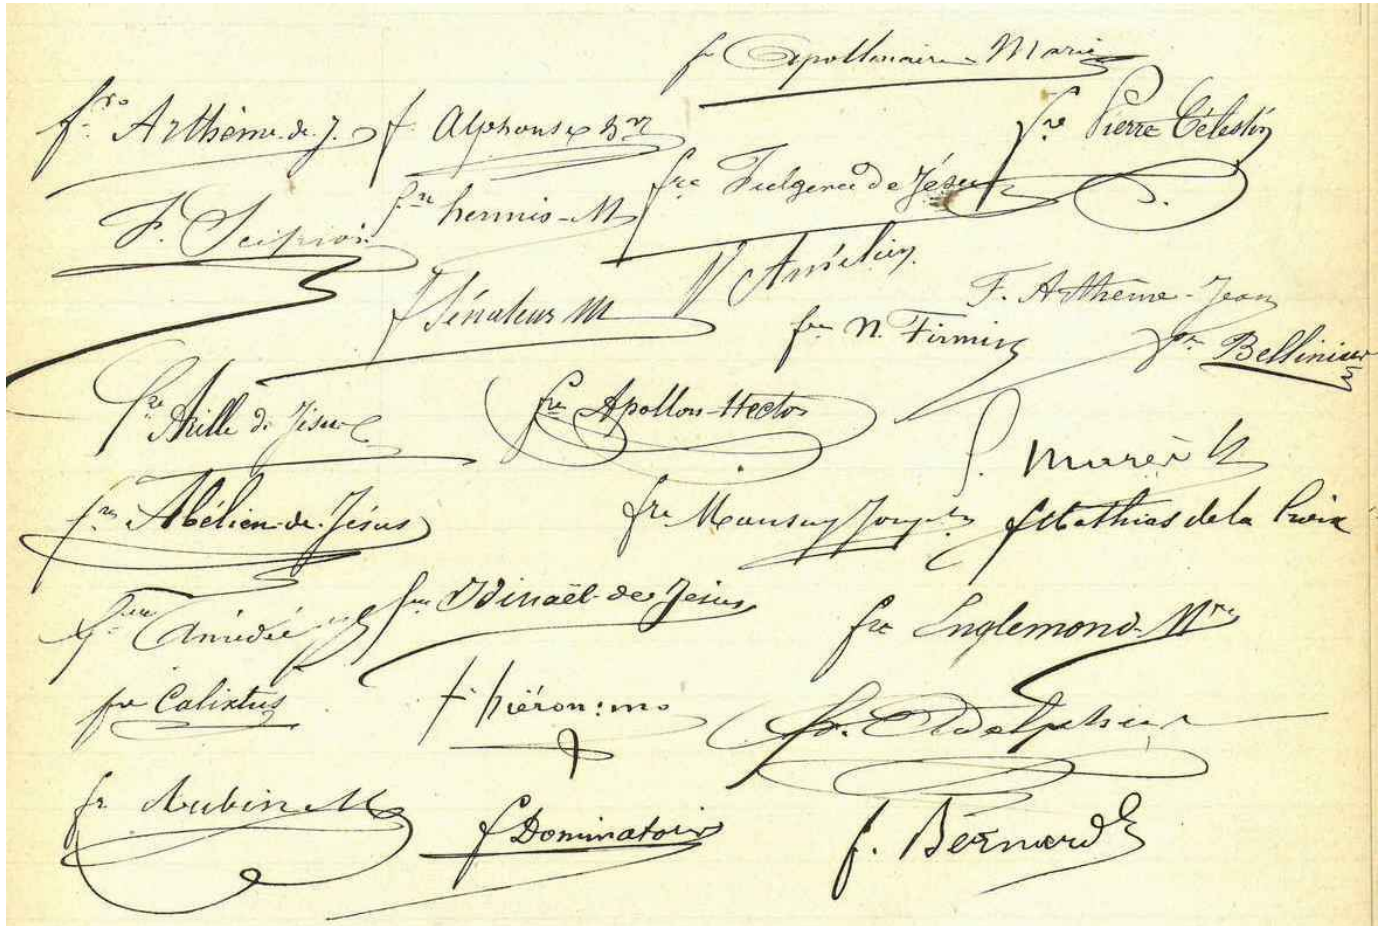 f. Apollinaire-Marie
fre Arthème de J.
f. Alphonse
fre Pierre Célestin
fre Fulgence de Jésus
fre hermis-M
F. Scipion
Amélien
f Sénateur M
F. Arthème-Jean
fre N. Firmin
fre Bellinien
fre Arille de Jésus
fre Apollon-Hector
f. Marès
fre Abélien-de-Jésus
fre Mansuy Joseph
f Mathias de la Croix
fre Amédée
fre Idinaël-de-Jésus
fre Englemond-Mre
fre Calixtus
f. hiéronimo
fr. Adelphius
fr Aubin M
f Dominator
f. Bernard